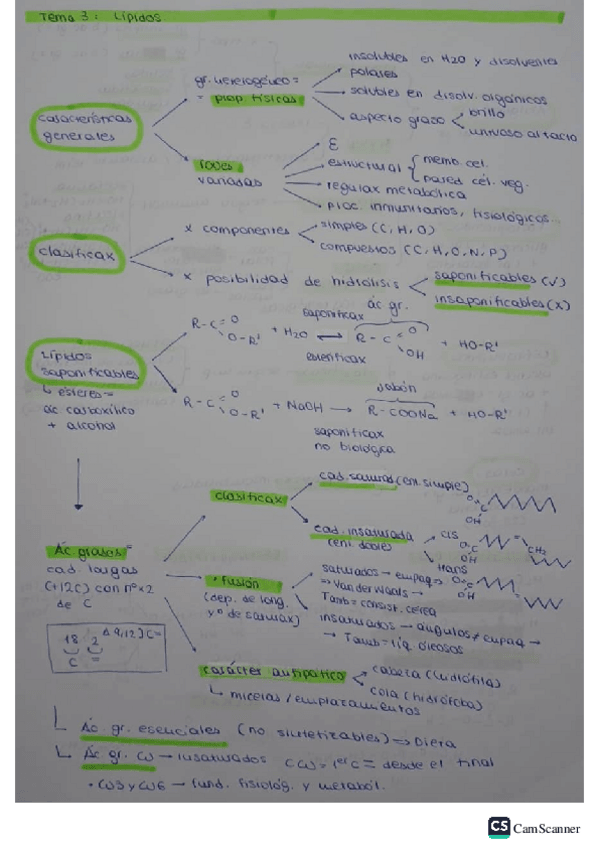 Tema 3: Lípidos
características generales
gr. heterogéneo =
= prop. físicas
insolubles en H2O y disolventes
polares
solubles en disolv. orgánicos
aspecto graso
brillo
untuoso al tacto
roles
variados
E
estructural
memb cel.
pared cél. veg.
regulax metabólica
proc. inmunitarios, fisiológicos...
clasificax
x componentes
simples (C, H, O)
compuestos (C, H, O, N, P)
x posibilidad de hidrólisis
saponificables (✓)
insaponificables (X)
Lípidos
saponificables
↳ ésteres =
ác carboxílico
+ alcohol
saponificax
ác gr.
R-C=O O-R' + H2O ⇌ R-C=O OH + HO-R'
esterificax
jabón
R-C=O O-R' + NaOH → R-COONa + HO-R'
saponificax
no biológica
Ác grasos =
cad. largas
(+12C) con nº x2
de C
18 2 Δ9,12 } C=
C =
clasificax
cad. saturad (enl. simple)
O C OH
cad. insaturada
(enl. dobles)
cis
O C OH
CH2
trans
O C OH
· fusión
(dep. de long.
y º de saturax)
saturados → empaq ⇒
⇒ Van der Waals →
Tamb = consist. cérea
insaturados → ángulos ≠ empaq →
→ Tamb = líq. oleosos
carácter antipático
cabeza (hidrófila)
cola (hidrófoba)
↳ micelas / emplazamientos
↳ Ác. gr. esenciales (no sintetizables) ⇒ Dieta
↳ Ác. gr. ω → insaturados Cω = 1er C= desde el final
• ω3 y ω6 → fund. fisiológ. y metaból.
CS CamScanner